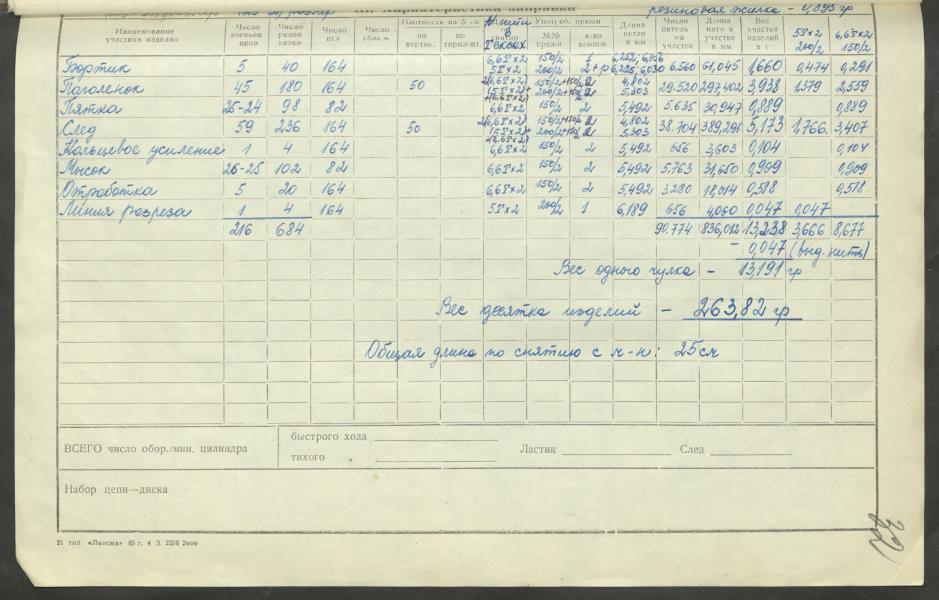 резиновая жилка – 0,895 гр
Наименование участков изделия | Число звеньев цепи | Число рядов вязки | Число игл | Число сбавок | Плотность на 5 см | по вертик. | по горизонт. | № нити в Тексах | Употреб. пряжи | №№ пряжи | к-во концов | Длина петли в мм | Число петель на участок | Длина нити в участке в мм | Вес участка изделий в г | 5Т×2 200/2 | 6,6Т×2 150/2
Бортик 5 40 164 6,6Т×2 150/2 1 6.560 61,045 1,660 0,474 0,291
5Т×2 200/2 2+р 6,225
Паголенок 45 180 164 50 4,802 29.520 297,402 3,938 1379 2,559
5,303
Пятка 25-24 98 82 6,6Т×2 150/2 2 5,492 5.635 30,947 0,889 0,889
След 59 236 164 50 4,802 38.704 389,291 5,173 1,766 3,407
5,303
Кольцевое усиление 1 4 164 6,6Т×2 150/2 2 5,492 656 3,603 0,104 0,104
Мысок 26-25 102 82 6,6Т×2 150/2 2 5,492 5.763 31,650 0,909 0,909
Отработка 5 20 164 6,6Т×2 150/2 2 5,492 3.280 18,014 0,518 0,518
Линия разреза 1 4 164 5Т×2 200/2 1 6,189 656 4,060 0,047 0,047
216 684 90.774 836,012 13,238 3,666 8,677
– 0,047 (выд. нить)
Вес одного чулка – 13,191 гр
Вес десятка изделий – 263,82 гр
Общая длина по снятию с м-н: 25 см
ВСЕГО число обор./мин. цилиндра
быстрого хода
тихого „
Ластик
След
Набор цепи—диска
21 тип. «Лиесма» 65 г. 4 З. 2298 2000